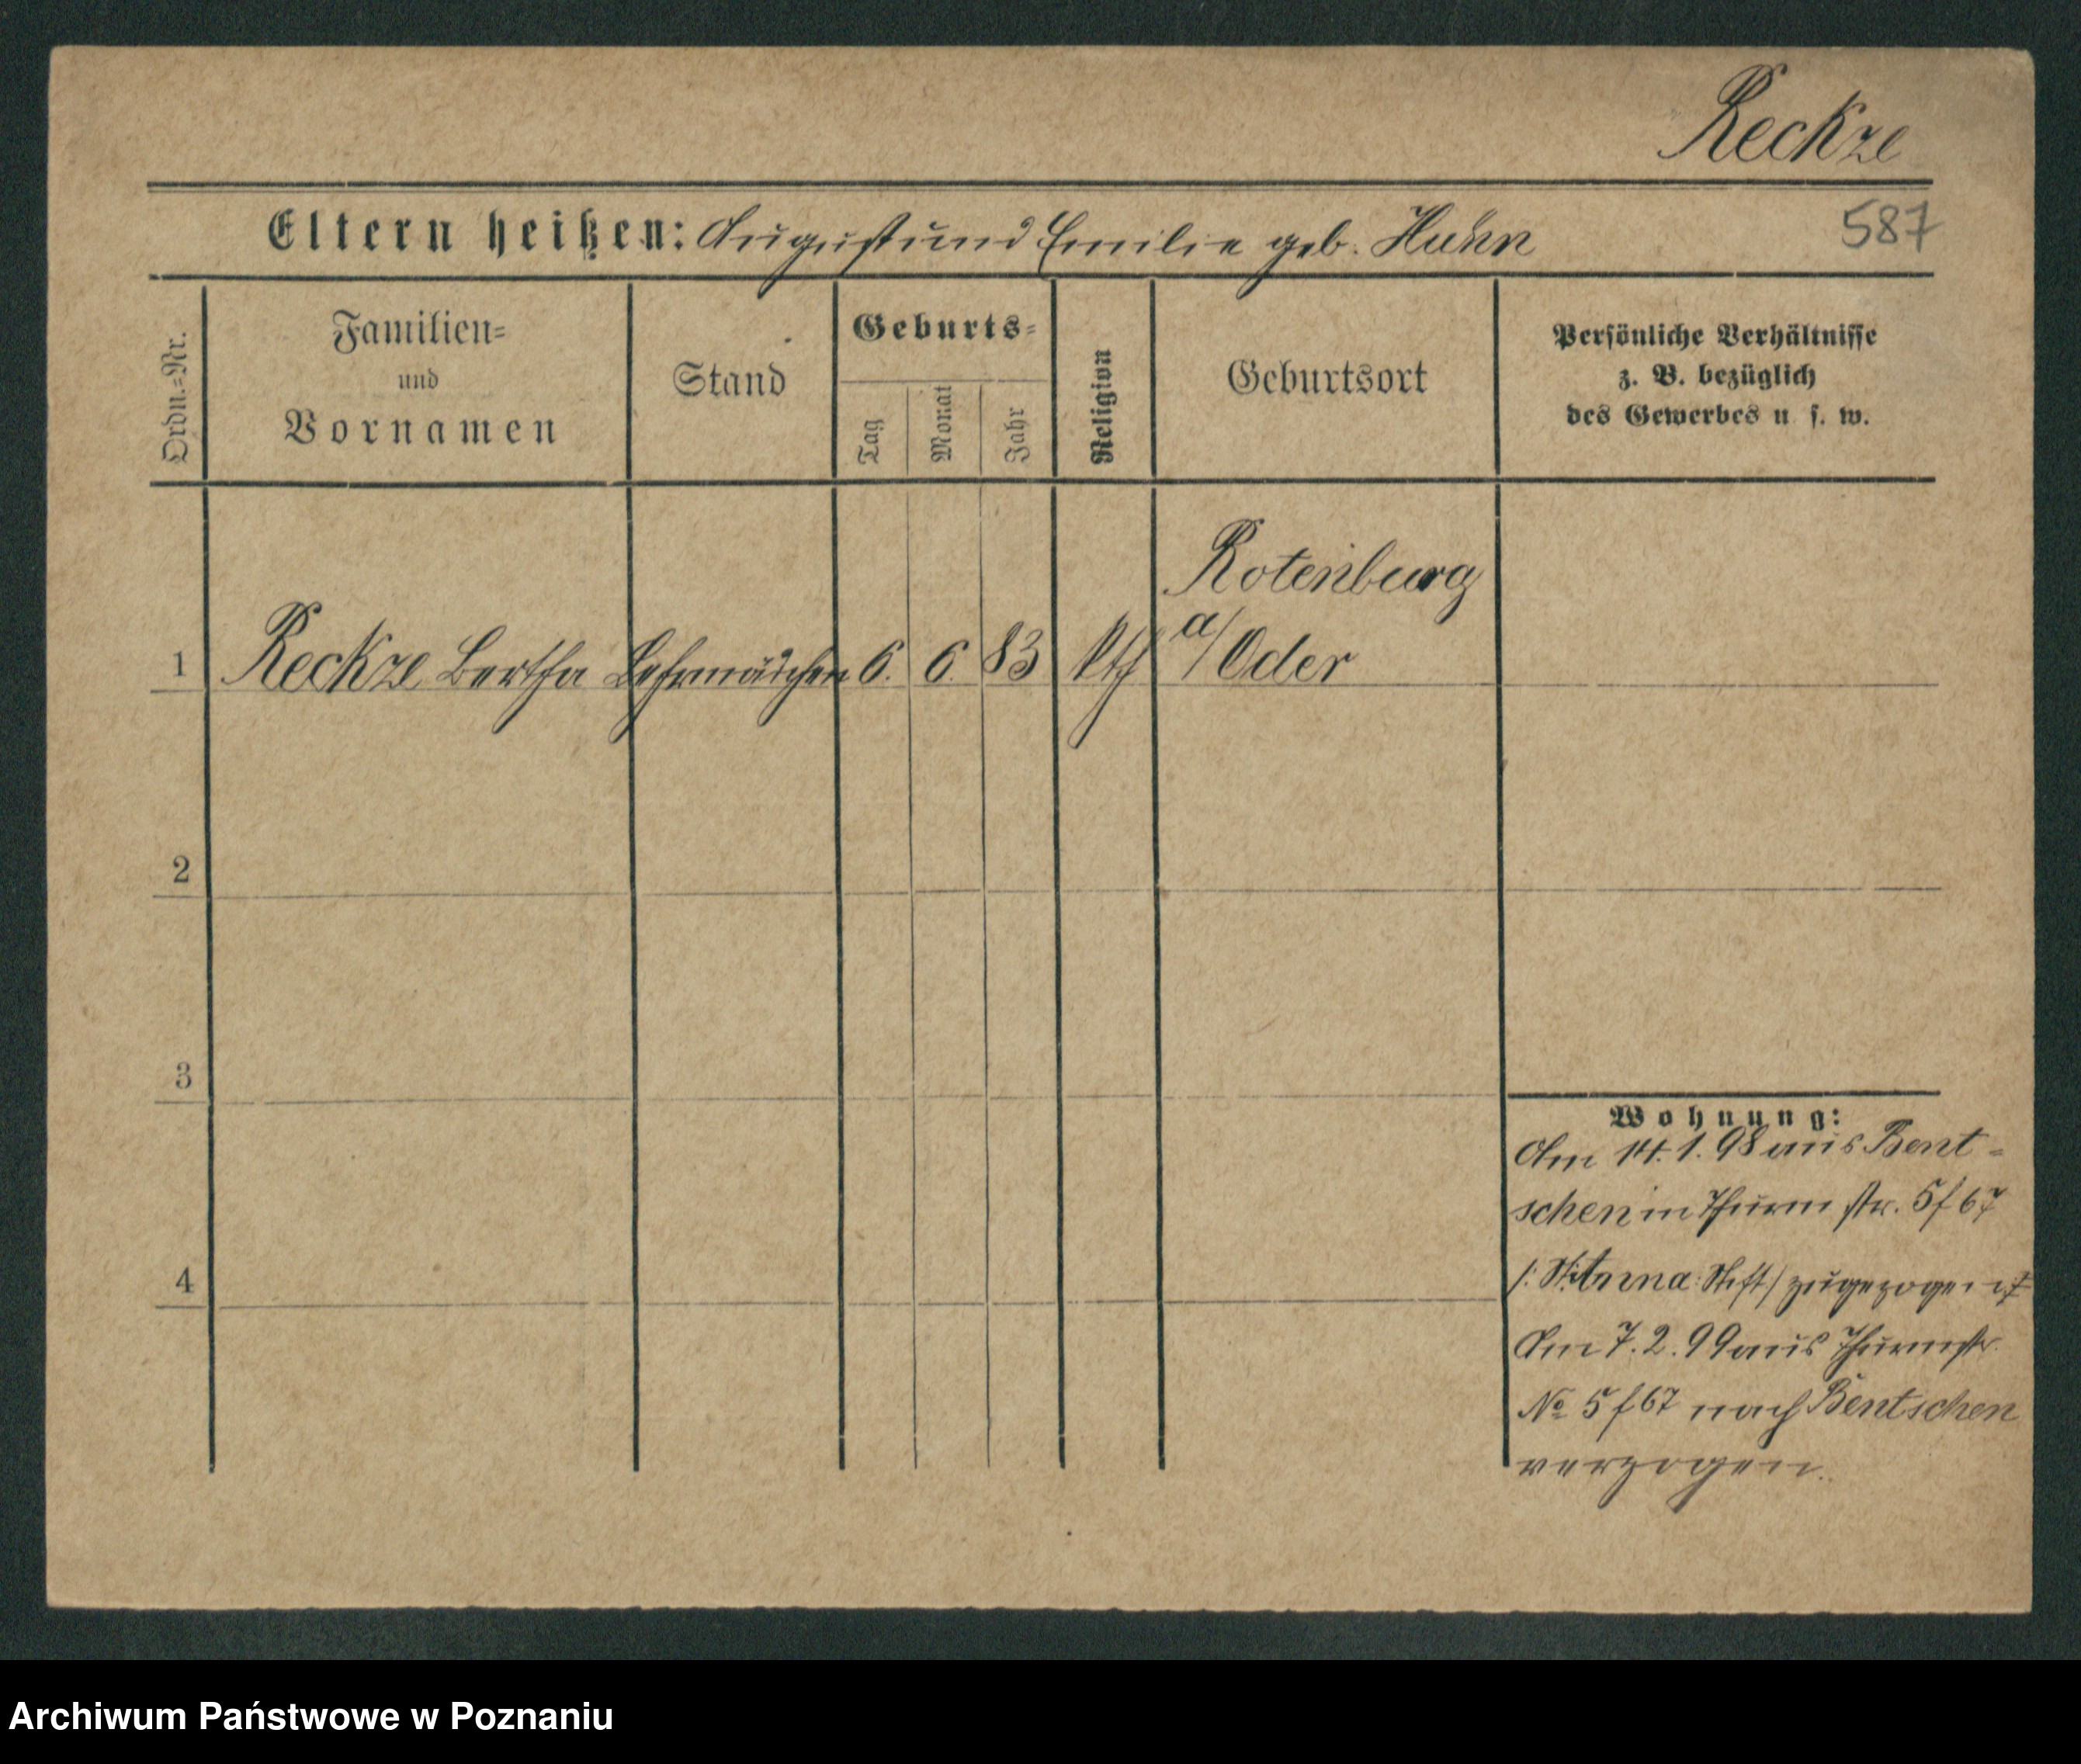 Reckze
Eltern heißen: August und Emilie geb. Huhn
587
Ordn.=Nr.
Familien=
und
Vornamen
Stand
Geburts=
Tag
Monat
Jahr
Religion
Geburtsort
Persönliche Verhältnisse
z. B. bezüglich
des Gewerbes u. s. w.
Rotenburg
1 Reckze Bertha Lehrmädchen 6. 6. 83 kth a/Oder
2
3
4
Wohnung:
Am 14.1.98 aus Bent-
schen in Thurmstr. 5f67
/: St. Anna: Stift/ zugezogen
Am 7.2.99 aus Thurmstr.
№ 5f67 nach Bentschen
verzogen.
Archiwum Państwowe w Poznaniu